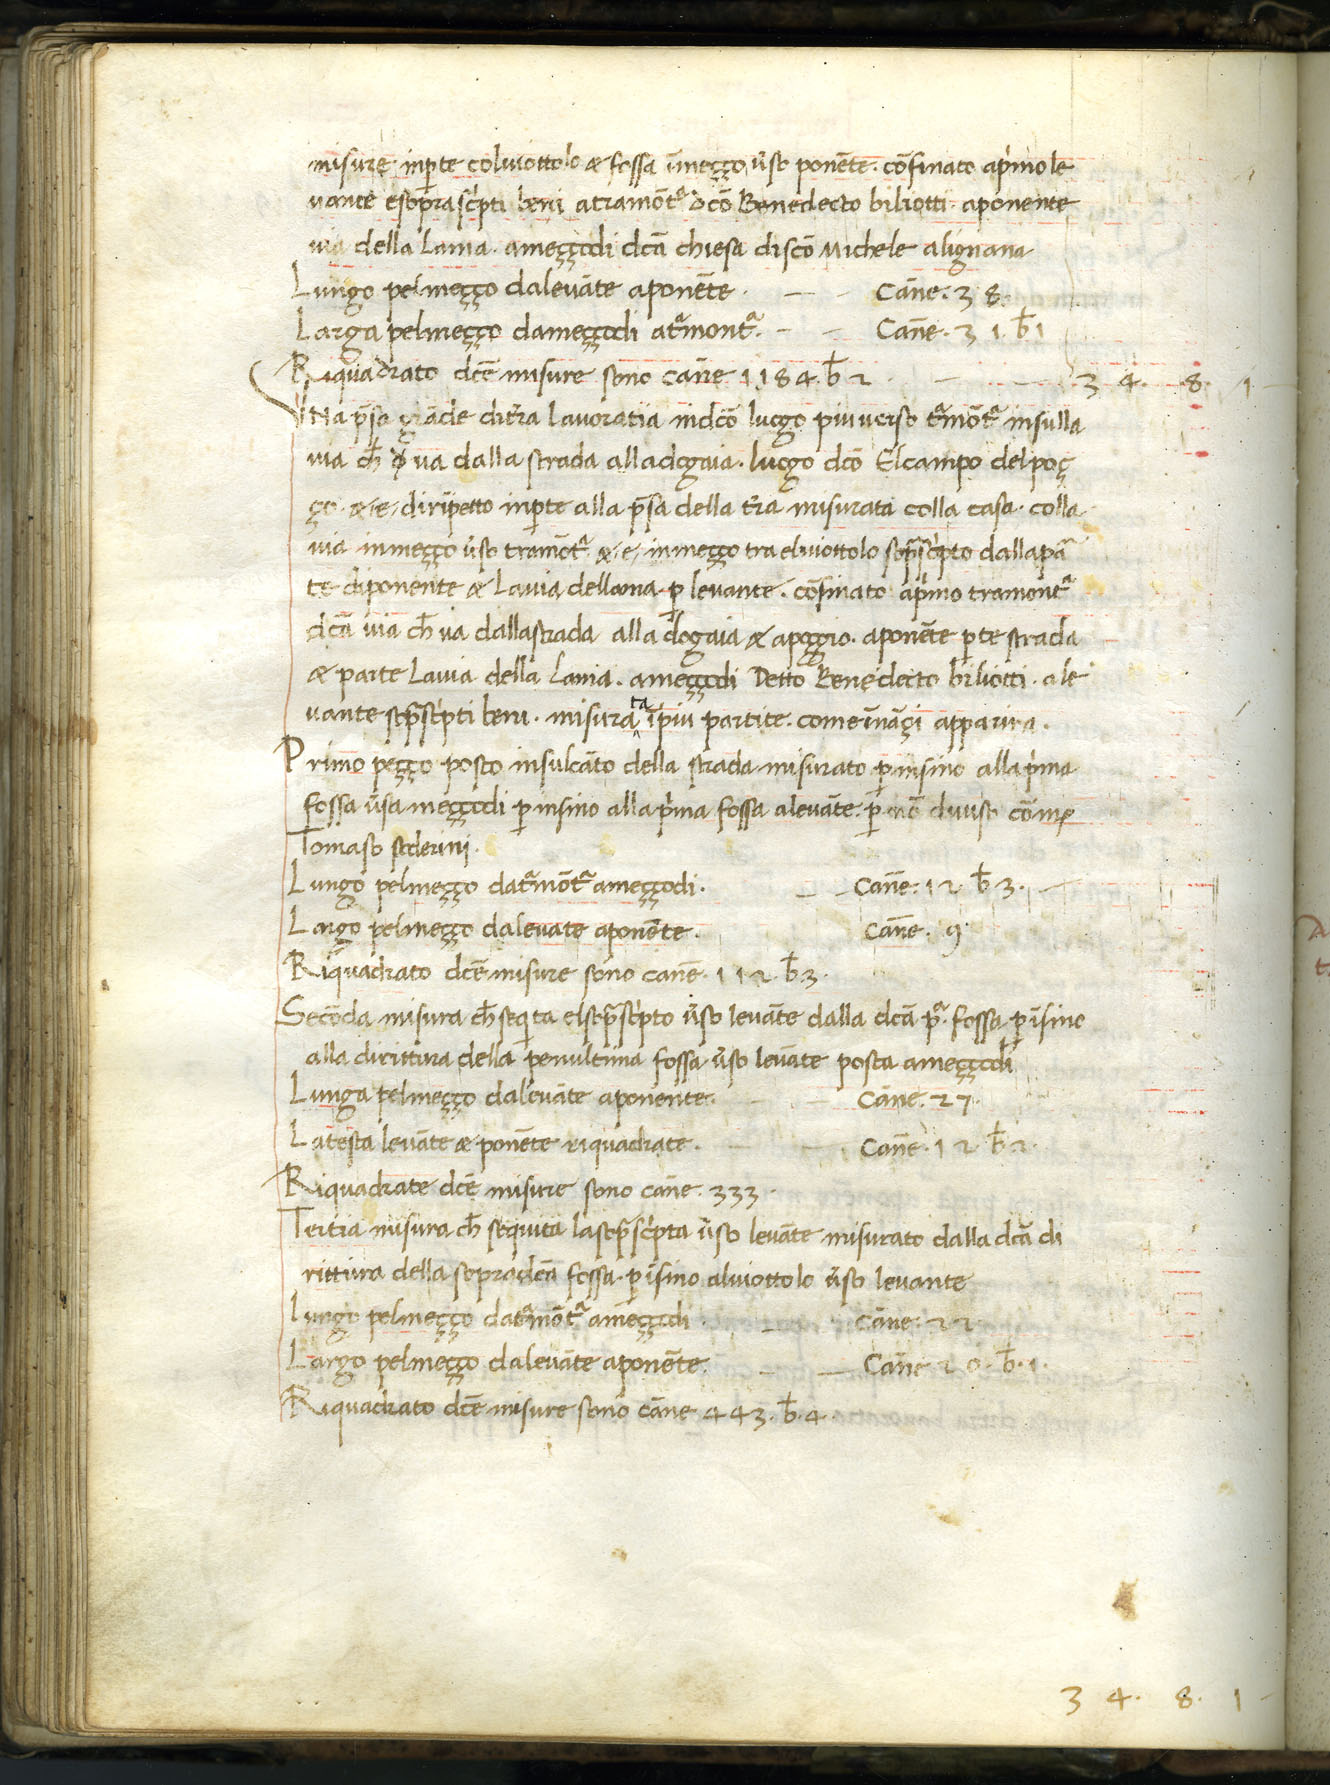 misure inp̱te coluiottolo & fossa īmeçço ũso ponēte. cōfinato ap̍mo le
uante esop̄rasc̍pti beni atramōtª dcō Benedecto biliotti. aponente
uia della Lama. ameççodi dcā chiesa discō Michele alignana
Lungo pelmeçço daleuāte aponēte. Cāne. 38.
Larga pelmeçço dameççodi atªmontª. Cāne. 31 b̄ 1
Riquadrato dcē misure sono cāne 1184. b̄ 2 34. 8. 1
VNa p̄sa grāde dit̄ra Lauoratiia indcō luogo piu uerso tªmōtª insulla
uia ch̄ ua dalla strada alladogaia. luogo dcō Elcampo delpoç
ço. & e diripetto inp̱te alla p̄sa della t̄ra misurata colla casa. colla
uia inmeçço ũso tramōtª. & e inmeçço tra eluiottolo sop̄sc̍pto dallapā
te diponente & Lauia dellama p̱ leuante. cōfinato ap̍mo tramontª
dcā uia ch̄ ua dallastrada alla dogaia & apoggio. aponēte p̱te strada
& parte Lauia della Lama. ameççodi Detto Benedecto biliotti. ale
uante sop̄sc̍pti beni. misurata īpiu partite. come īnāçi apparira.
Primo peçço posto insulcāto della strada misurato p̱ insino allap̍ma
fossa ũsa meççodi p̱ insino allap̍ma fossa aleuāte. p̱ nō diuiso cōme
Tomaso soderini.
Lungo pelmeçço datªmōtª ameççodi. Cāne. 12 b̄ 3.
Largo pelmeçço daleuate aponēte. Cāne. 9.
Riquadrato dcē misure sono canē. 112. b̄. 3.
Secōda misura ch̄ seqta elsop̄sc̍pto ũso leuāte dalla dcā pª. fossa p̱ īsino
alla dirittura della penultima fossa ũso leuāte posta ameççodi
Lunga pelmeçço daleuāte aponente. Cāne. 27.
Latesta leuāte & ponēte riquadrate. Cāne. 12 b̄ 2.
Riquadrate dcē misure sono cāne. 333.
Tertia misura ch̄ sequita lasop̄sc̍pta ũso leuāte misurato dalla dcā di
rittura della sopradcā fossa. p̱ īsino aluiottolo ũso leuante
Lungo pelmeçço datªmōtª ameççodi Cāne. 22
Largo pelmeçço daleuāte aponēte. Cāne 20. b̄. 1.
Riquadrato dcē misure sono cāne 443. b̄. 4.
34. 8. 1